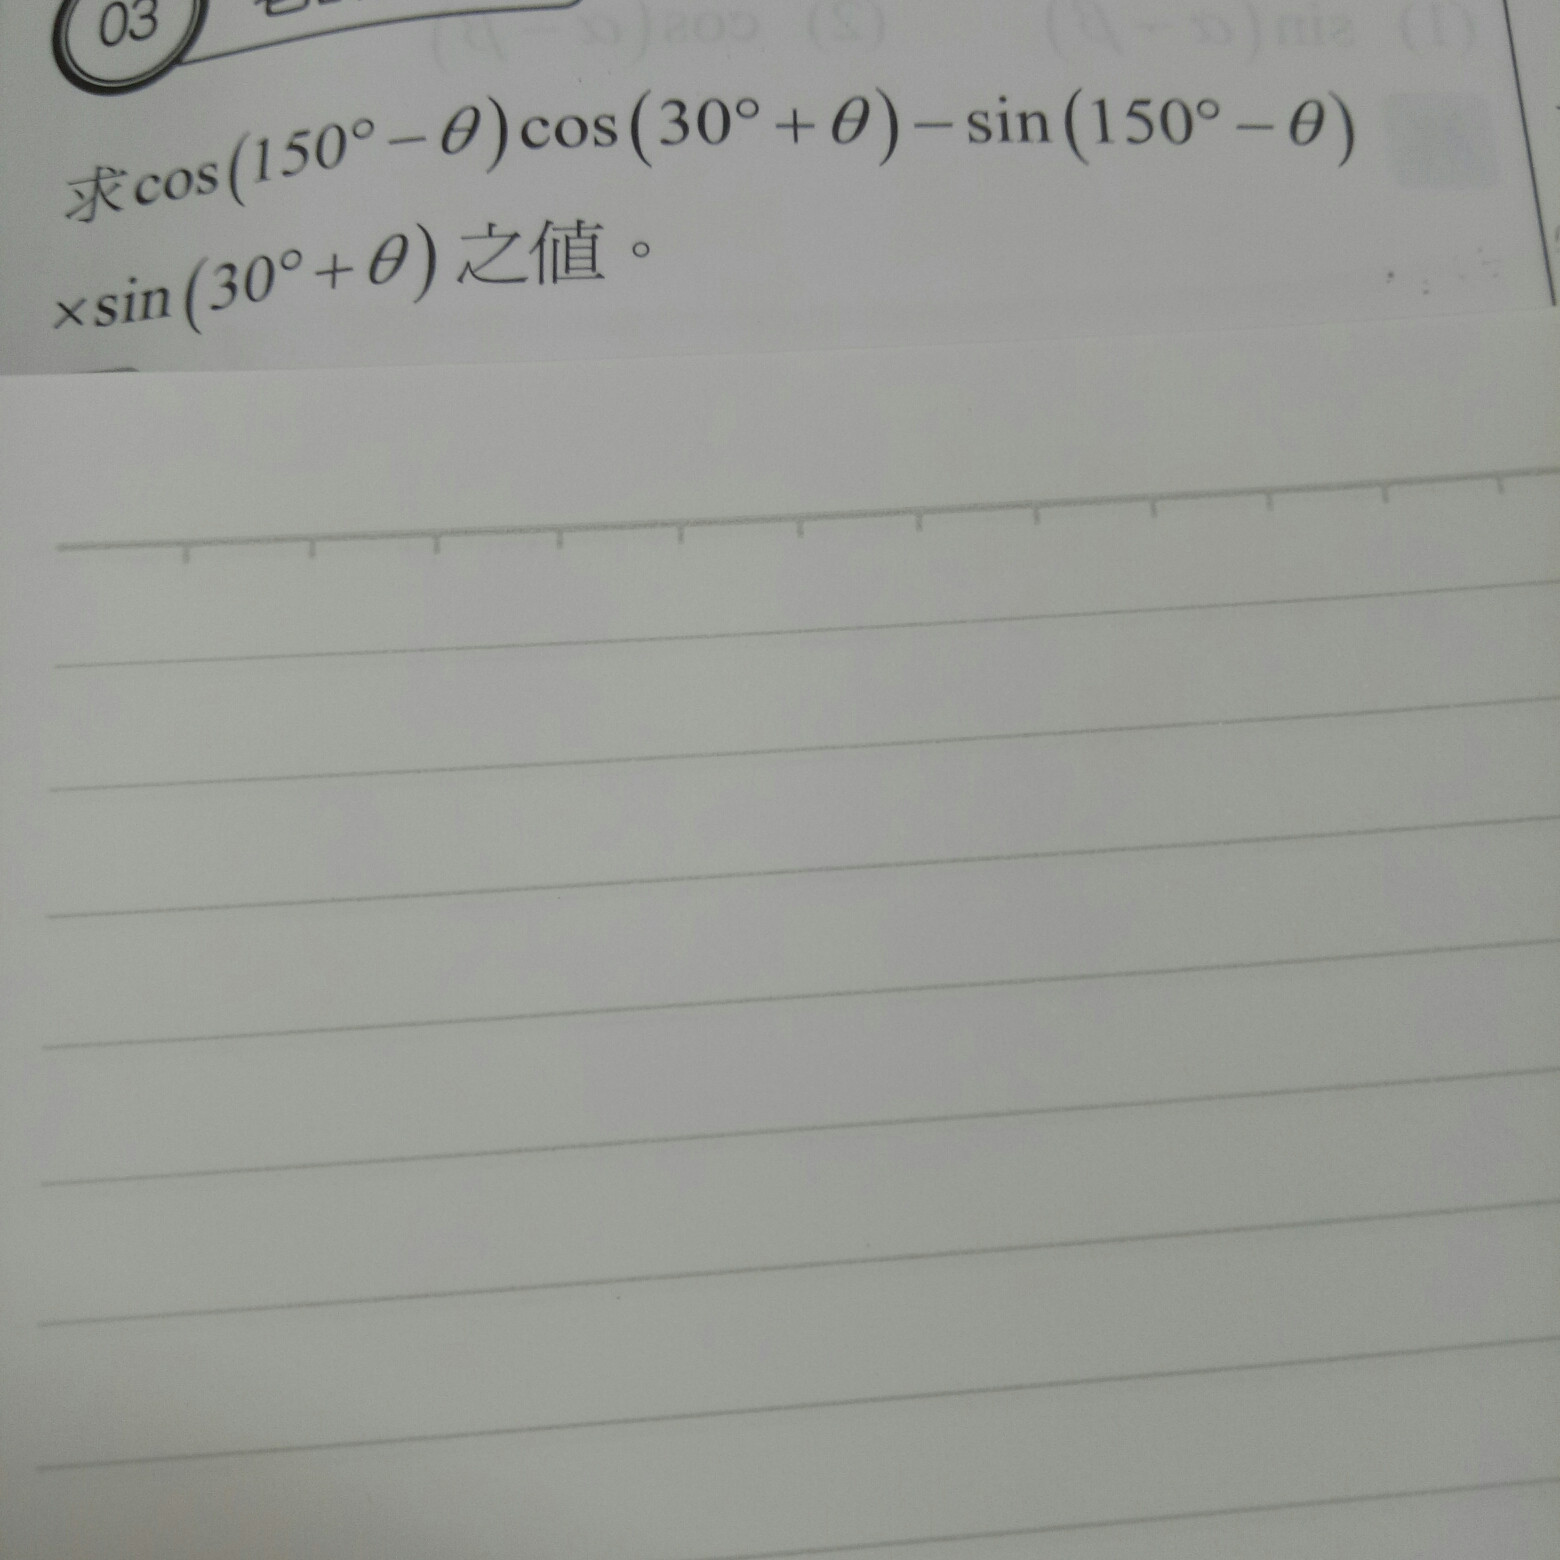 03
求cos(150°−θ)cos(30°+θ)−sin(150°−θ)
×sin(30°+θ)之值。